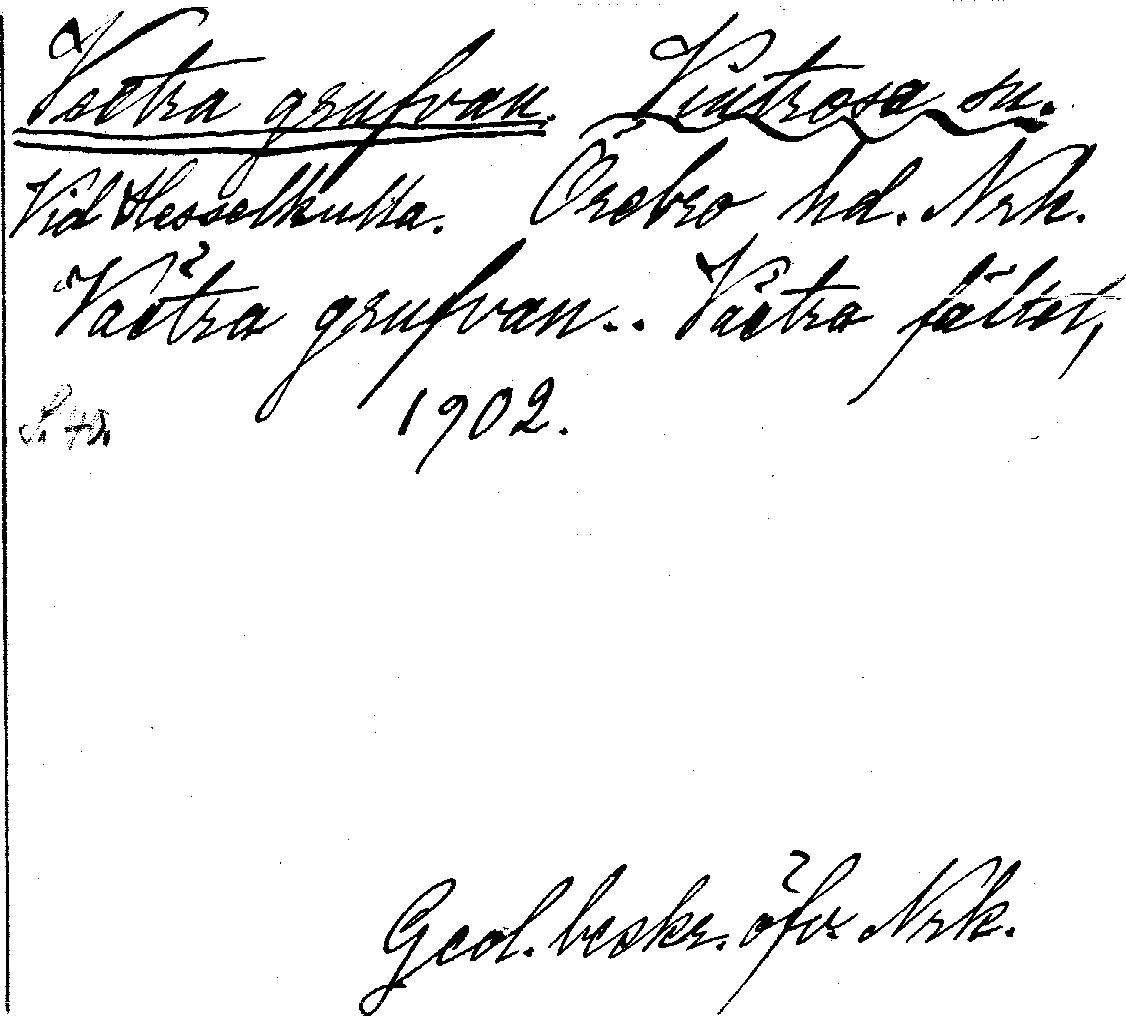 Vestra grufvan. Vintrosa sn.
Vid Hesselkulla. Örebro hd. Nrk.
Västra grufvan.. Västra fältet,
S. 40. 1902.
Geol. beskr. öfv. Nrk.